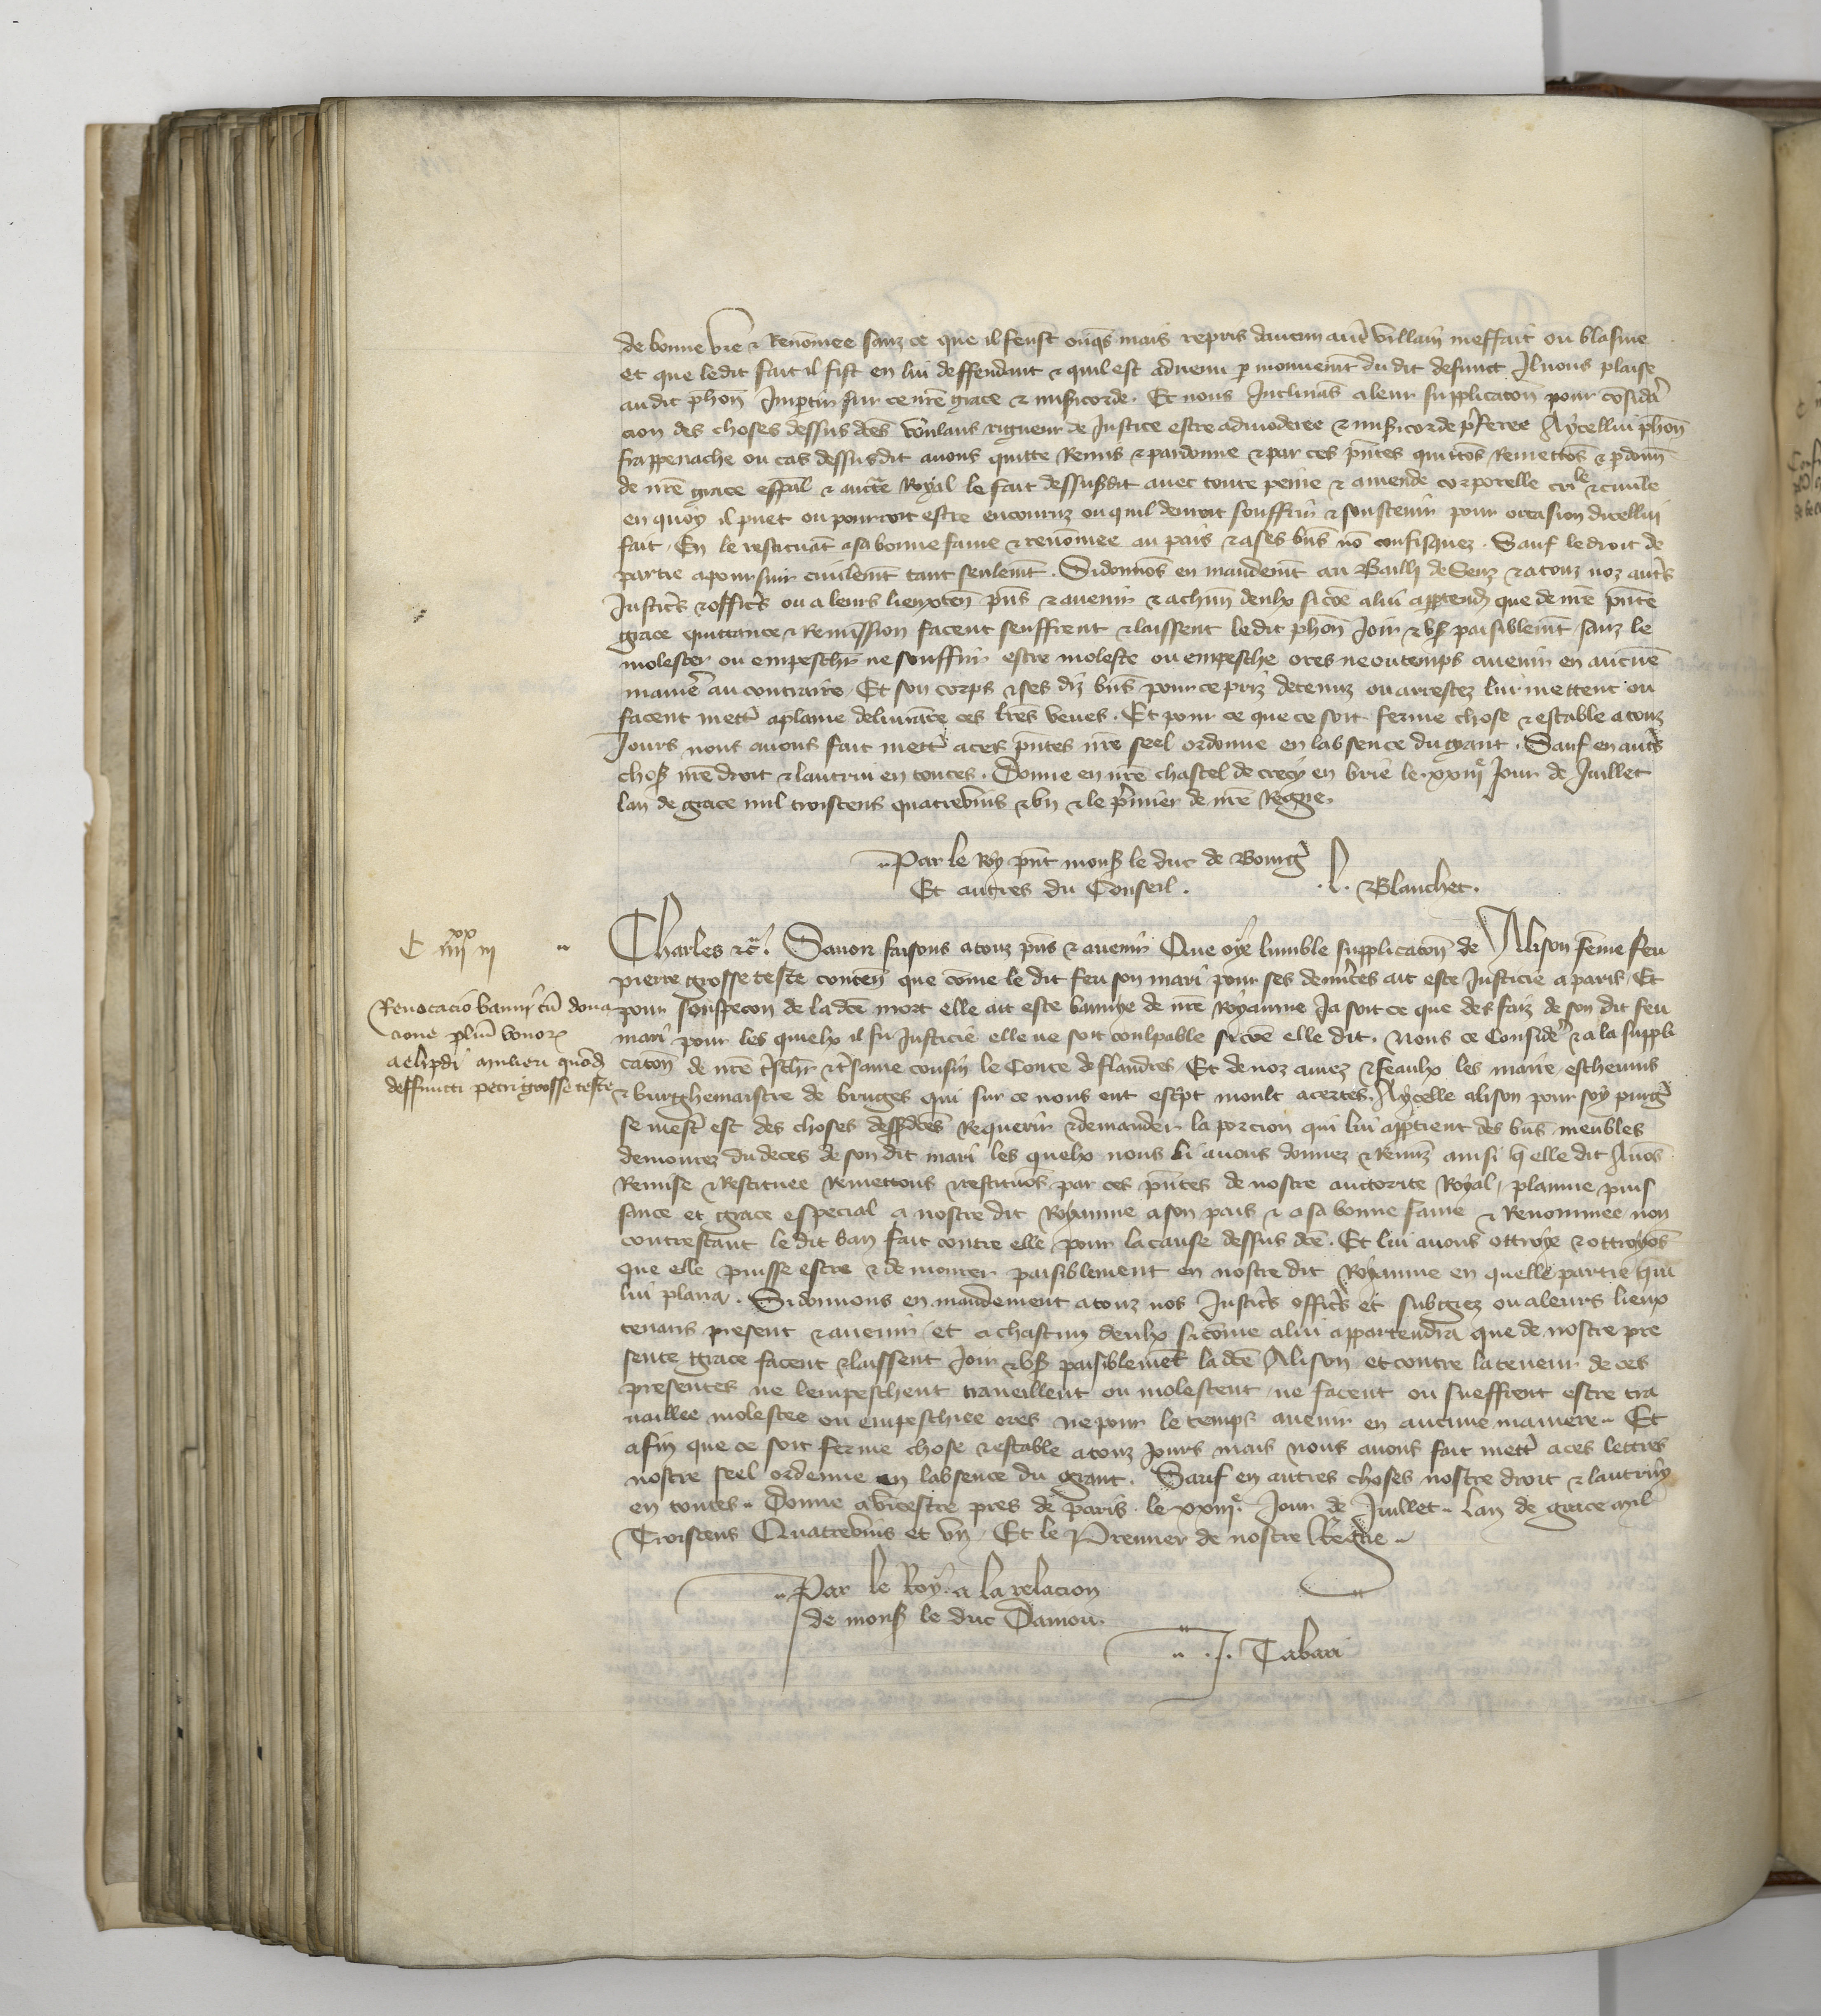 de bonne vie & Renōmee sanz ce que il feust onqs mais repris daucun autr̃ villain meffait ou blasme
et que ledit fait il fist en lui deffendant & quil est advenu ꝑ mouuem̄t du dit defunct Il nous plaise
audit phōn Impartir sur ce nr̃e grace & misicorde. Et nous Inclinās a leur supplicatōn pour cōsidera
cion des choses dessus dc̃es voulans rigueur de Justice estre admoderee & misicorde p̃feree Aycellui phōn
frappenache ou cas dessusdit auons quitte Remis & pardonne & par ces p̃ntes quittōs Remettōs & ꝑdonn̄
de nr̃e grace esp̃al & aucte Royal le fait dessusdit auec toute peine & amende corporelle crile & ciuile
en quoy il puet ou pourroit estre encouruz ou quil deuroit souffrir & soustenir pour occasion dicellui
fait. En le restituāt a sa bonne fame & renōmee au pais & a ses biēs nō confisquez. Sauf le droit de
partie a poursuir ciuilem̄t tant seulem̄t. Si donnōs en mandem̄t au Bailli de Senz & a touz noz autr̃s
Justic̃s & offic̃s ou a leurs lieuxten̄ p̃ns & auenir & a chūn deulx si cōe a lui appartend̃ que de nr̃e p̃nte
grace quittance & Remission facent seuffrent & laissent ledit phōn Joir & vs̃ paisiblem̄t sanz le
molester ou empeschr̃ ne souffrir estre moleste ou empesche ores ne ou temps auenir en aucune
manie᷑ au contraire. Et son corps & ses diz biēs pour ce priz detenuz ou arrestez lui mettent ou
facent mettr̃ a plaine deliurāce ces lr̃es veues. Et pour ce que ce soit ferme chose & estable a touz
Jours nous auons fait mettr̃ a ces p̃ntes nr̃e seel ordonne en labsence du grant. Sauf en autr̃s
chos̃ nr̃e droit & lautrui en toutes. Donne en nr̃e chastel de crecy en brie le xxiije Jour de Juillet
lan de grace mil troiscens quatrevins & vn & le p̃mier de nr̃e Regne.
Par le Roy p̃nt mons̃ le duc de Bourg̃
Et autres du Conseil. .L. Blanchet.
C iiijxx iij
Charles &c̃. Sauoir faisons a touz p̃ns & auenir Que oye lumble supplicatōn de Alison fēme feu
pierre grosseteste conten̄ que cōme le dit feu son mari pour ses demerites ait este Justicie a paris Et
pour souspecon de la dc̃e mort elle ait este bannye de nr̃e Royaume Ja soit ce que des faiz de son dit feu
mari pour les quielx il fu Justicie elle ne soit coulpable si cōe elle dit. Nous ce Consider̃ & a la suppli
catōn de nr̃e tr̃schr̃ & tr̃same cousin le Conte de flandres Et de noz amez & feaulx les maire escheuins
& burghemaistre de bruges qui sur ce nous ont escp̃t moult acertes. Aycelle alison pour soy purg̃
se mest̃ est des choses dessusdc̃es Requerir & demander la porcion qui lui apptient des biēs meubles
demourez du deces de son dit mari les quelx nous li auons donnez & Remiz ainsi q̃ elle dit Auōs
Remise & Restituee Remettons & restituōs par ces p̃ntes de nostre auctorite Royal, plainne puis
sance et grace especial a nostre dit Royaume a son pais & a sa bonne fame & Renommee non
contrestant le dit ban fait contre elle pour la cause dessus dc̃e. Et lui auons ottroye & ottroyōs
que elle puisse estre & demourer paisiblement en nostre dit Royaume en quelle partie qui
lui plaira. Si donnons en mandement a touz nos Justic̃s offic̃s et subgiez ou a leurs lieux
tenans present & auenir et a chascun deulx si cōme a lui appartendra que de nostre pre
sente grace facent & laissent Joir & vs̃ paisiblemēt la dc̃e Alison et contre la teneur de ces
presentes ne lempeschent traueillent ou molestent ne facent ou sueffrent estre tra
uaillee molestee ou empeschiee ores ne pour le temps auenir en aucune maniere. Et
afin que ce soit ferme chose & estable a touz Jours mais nous auons fait mettr̃ a ces lettres
nostre seel ordenne en labsence du grant. Sauf en autres choses nostre droit & lautruy
en toutes. Donne a vicestre pres de paris le xxiije Jour de Juillet Lan de grace mil
Troiscens Quatrevins et vn. Et le Premier de nostre Regne
Reuocacio banni cū dona
cione pluriū bonor̃
aelipdi mulieri quōd
deffuncti petri grosse teste
Par le Roy. a la relacion
de mons̃ le duc Daniou.
J. Tabari